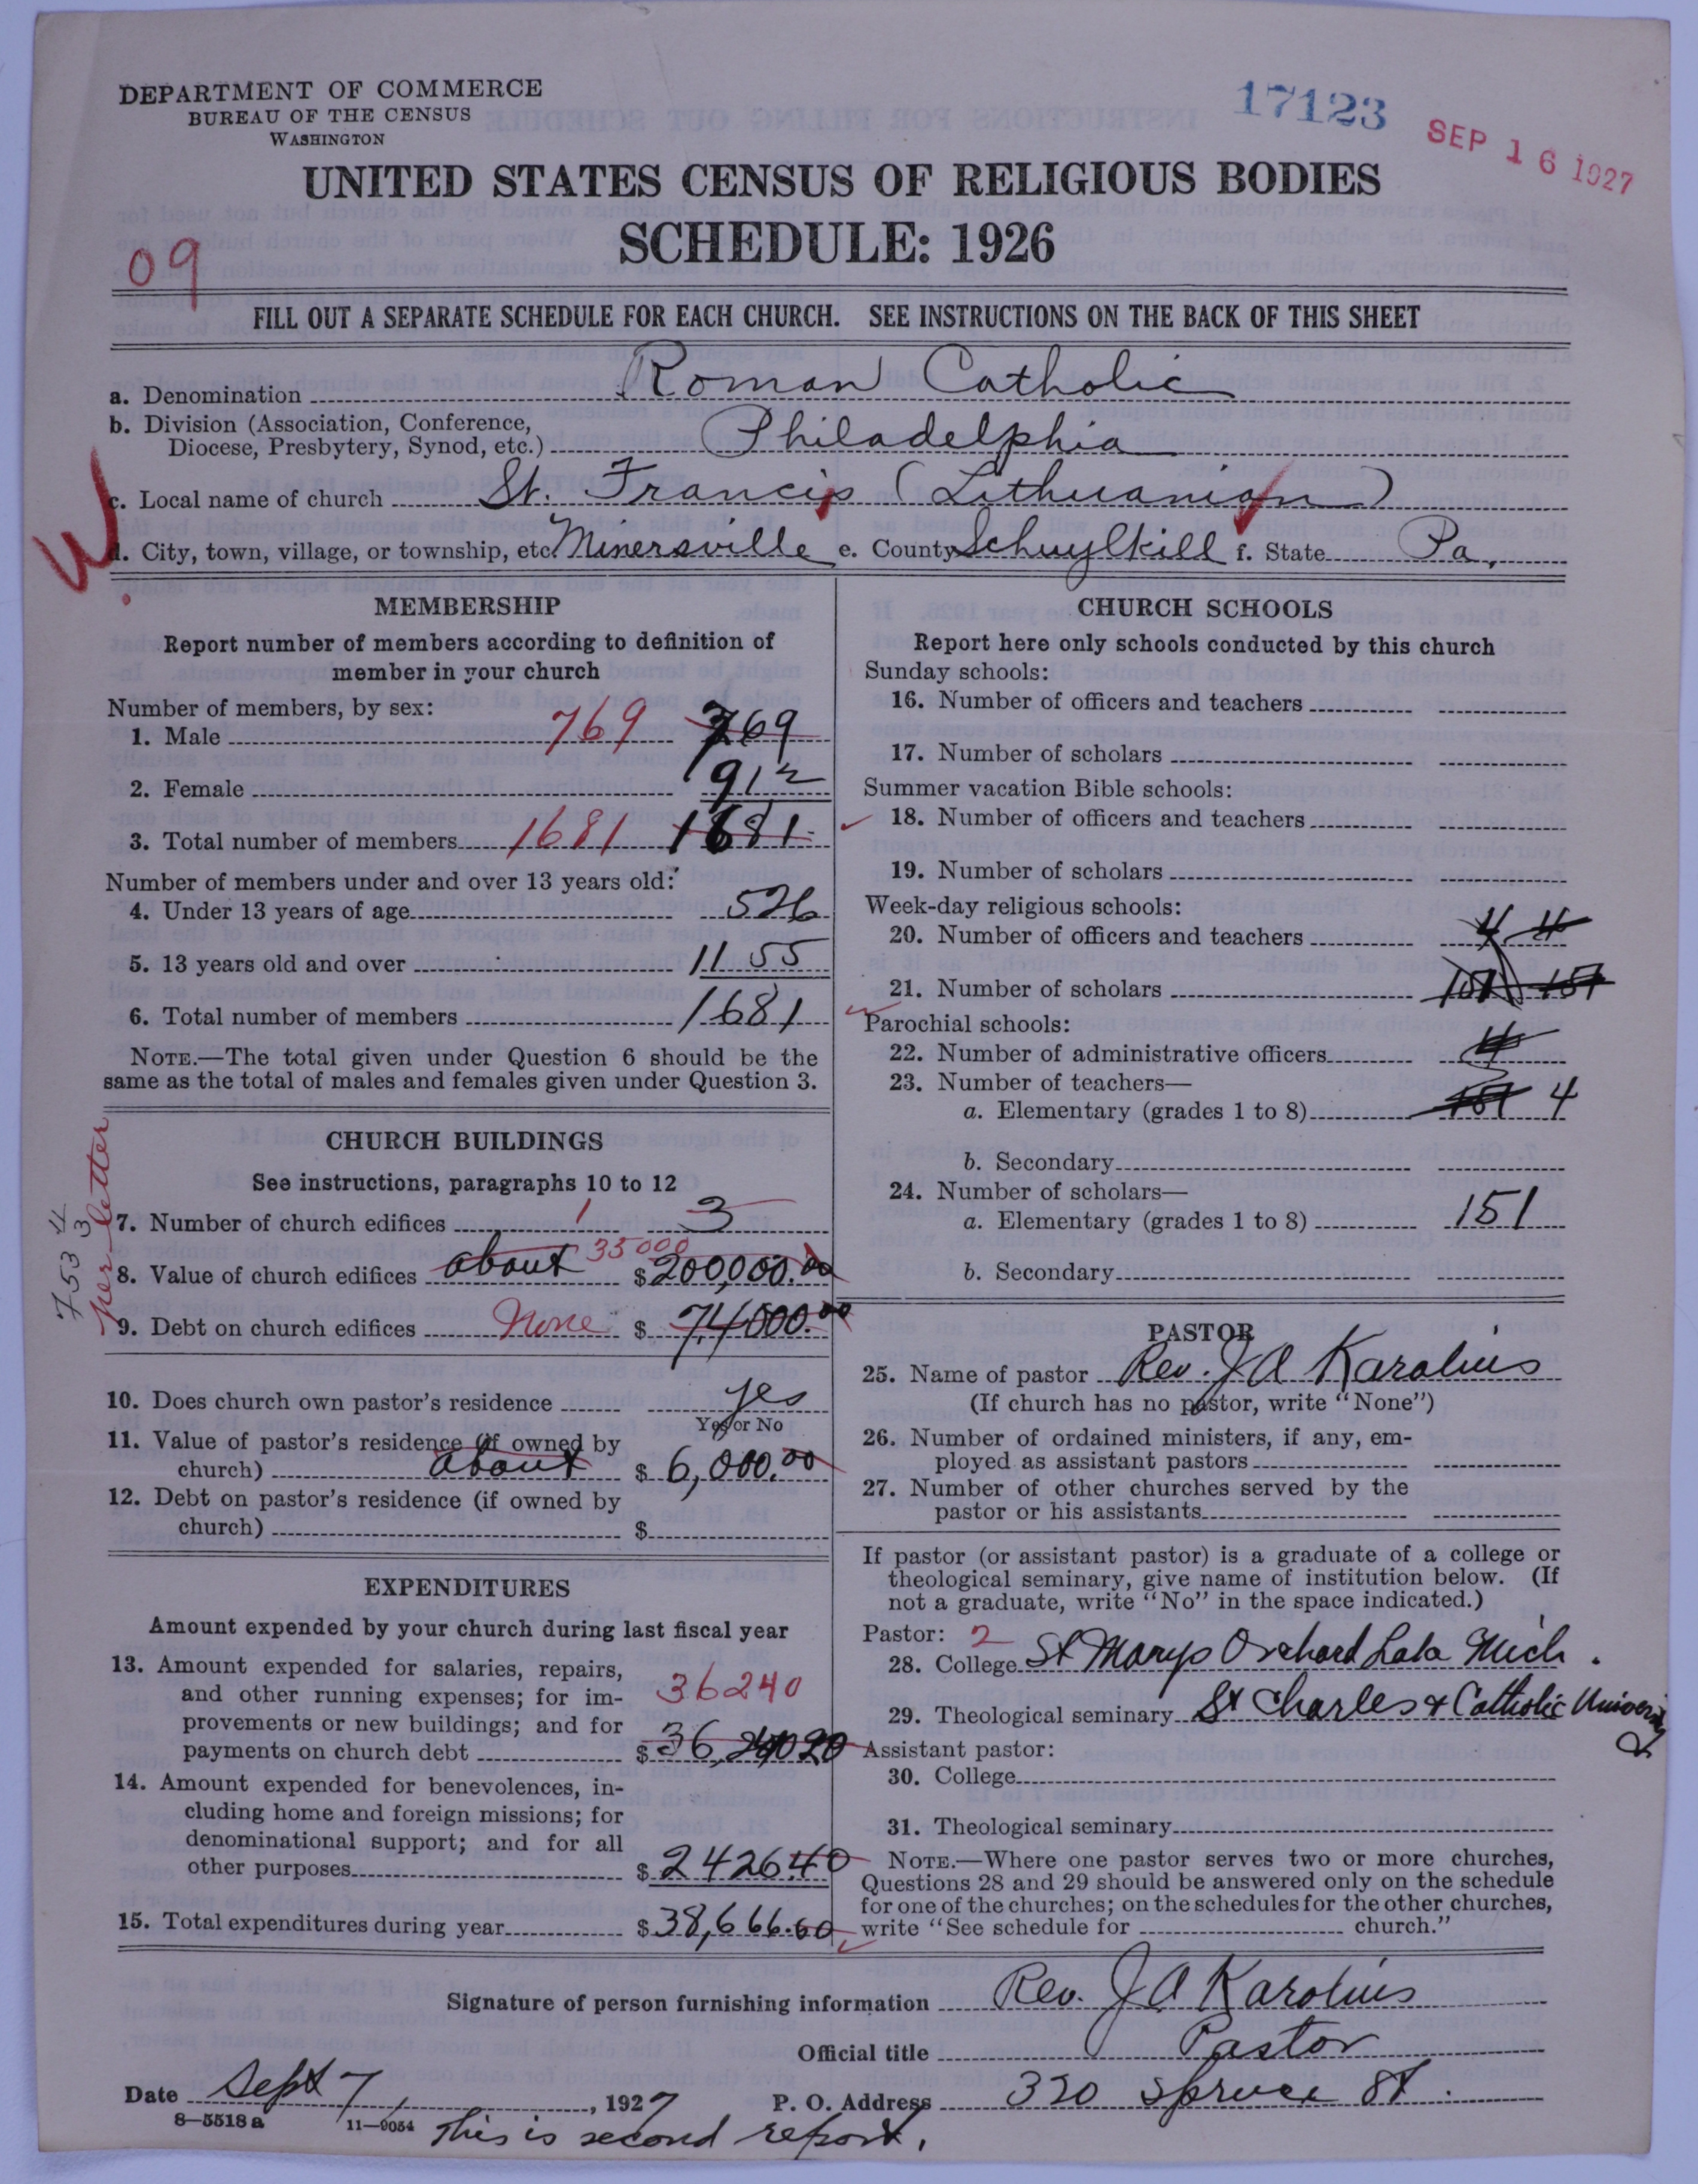 DEPARTMENT OF COMMERCE
BUREAU OF THE CENSUS
WASHINGTON
17123
SEP 16 1927
UNITED STATES CENSUS OF RELIGIOUS BODIES
SCHEDULE: 1926
09
FILL OUT A SEPARATE SCHEDULE FOR EACH CHURCH. SEE INSTRUCTIONS ON THE BACK OF THIS SHEET
a. Denomination Roman Catholic
b. Division (Association, Conference,
Diocese, Presbytery, Synod, etc.) Philadelphia
c. Local name of church St. Francis (Lithuanian)
d. City, town, village, or township, etc. Minersville e. County Schuylkill f. State Pa.
MEMBERSHIP
Report number of members according to definition of
member in your church
Number of members, by sex:
1. Male 769 769
2. Female 912
3. Total number of members 1681 1681
Number of members under and over 13 years old:
4. Under 13 years of age 526
5. 13 years old and over 1155
6. Total number of members 1681
NOTE.—The total given under Question 6 should be the
same as the total of males and females given under Question 3.
CHURCH BUILDINGS
See instructions, paragraphs 10 to 12
7534
3
per letter
7. Number of church edifices 1 3
8. Value of church edifices about 35000 $200,000.00
9. Debt on church edifices None $ 74000.00
10. Does church own pastor's residence yes
Yes or No
11. Value of pastor's residence (if owned by
church) about $ 6,000.00
12. Debt on pastor's residence (if owned by
church) $
EXPENDITURES
Amount expended by your church during last fiscal year
13. Amount expended for salaries, repairs,
and other running expenses; for im- 36240
provements or new buildings; and for
payments on church debt $36,24020
14. Amount expended for benevolences, in-
cluding home and foreign missions; for
denominational support; and for all
other purposes $2426.40
15. Total expenditures during year $38,666.60
CHURCH SCHOOLS
Report here only schools conducted by this church
Sunday schools:
16. Number of officers and teachers
17. Number of scholars
Summer vacation Bible schools:
18. Number of officers and teachers
19. Number of scholars
Week-day religious schools:
20. Number of officers and teachers 4 4
21. Number of scholars 151 151
Parochial schools:
22. Number of administrative officers 4
23. Number of teachers—
a. Elementary (grades 1 to 8) 151 4
b. Secondary
24. Number of scholars—
a. Elementary (grades 1 to 8) 151
b. Secondary
PASTOR
25. Name of pastor Rev. J A Karalius
(If church has no pastor, write "None")
26. Number of ordained ministers, if any, em-
ployed as assistant pastors
27. Number of other churches served by the
pastor or his assistants
If pastor (or assistant pastor) is a graduate of a college or
theological seminary, give name of institution below. (If
not a graduate, write "No" in the space indicated.)
Pastor: 2
28. College St Marys Orchard Lake Mich.
29. Theological seminary St Charles & Catholic University
2
Assistant pastor:
30. College
31. Theological seminary
NOTE.—Where one pastor serves two or more churches,
Questions 28 and 29 should be answered only on the schedule
for one of the churches; on the schedules for the other churches,
write "See schedule for church."
Signature of person furnishing information Rev. J A Karalius
Official title Pastor
Date Sept 7, 1927 P. O. Address 320 Spruce St.
8—5518a 11—9054 This is second report.